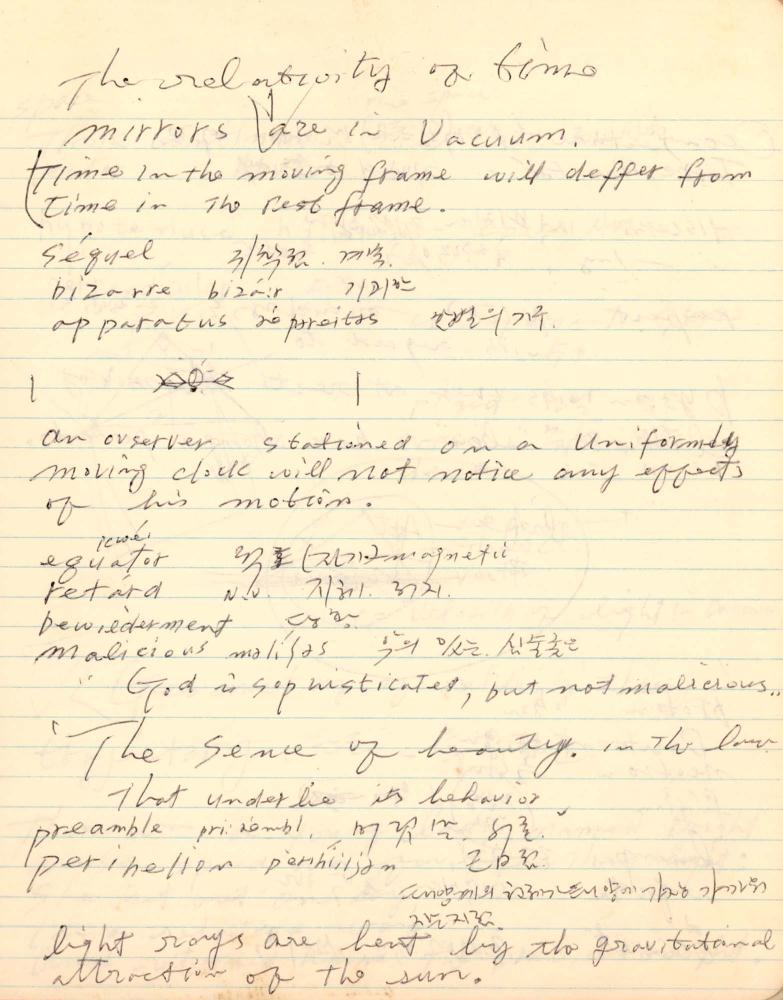 The relativity of time
mirrors are in Vacuum.
Time in the moving frame will deffer from
time in The rest frame.
séquel 귀착점. 계속.
bizarre bizáir 기괴한
apparatus
an ovserver stationed on a Uniformly
moving clock will not notice any effects
of his motion.
equator 적도 (자기) magnetic
retárd 지체.
bewiederment 당황.
malicious 악의 있는. 심술궂은
" God is sophisticated, but not malicious..
"The Sence of beauty. in The law
That underlie its behavior
preamble pri:æmbl. 머릿말. 서론.
perihelion 근일점.
태양에 가장 가까워
지는 지점.
light rays are bent by the gravitational
attraction of the sun.